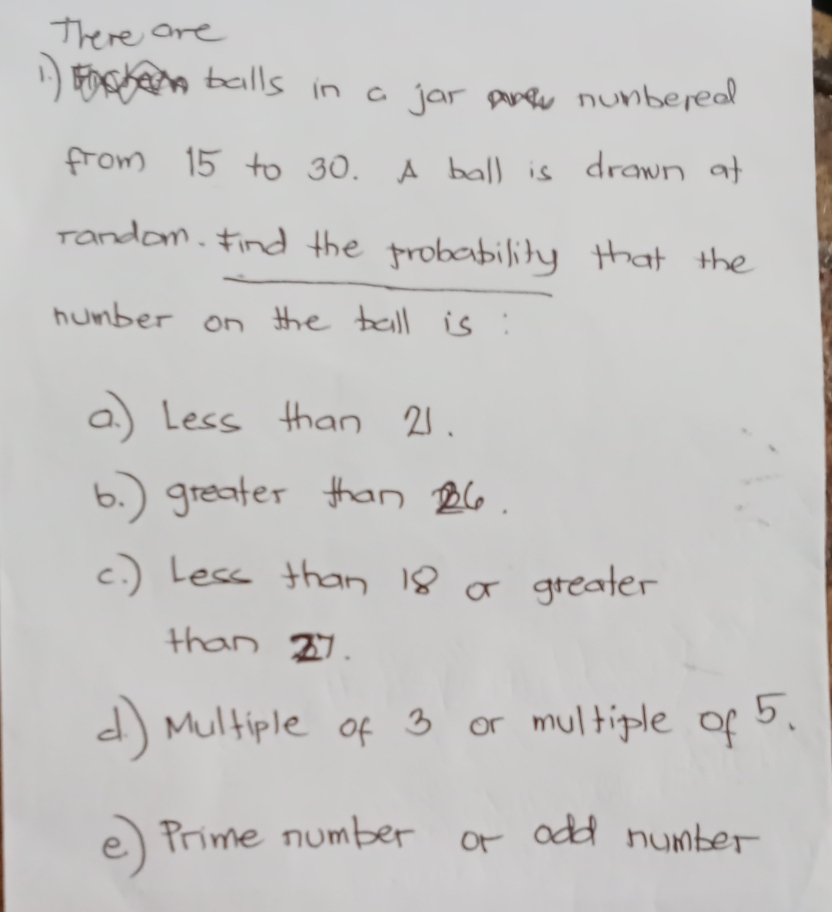 There are
1.) balls in a jar numbered
from 15 to 30. A ball is drawn at
random. Find the probability that the
number on the ball is :
a.) Less than 21.
b.) greater than 26.
c.) Less than 18 or greater
than 27.
d.) Multiple of 3 or multiple of 5.
e.) Prime number or odd number